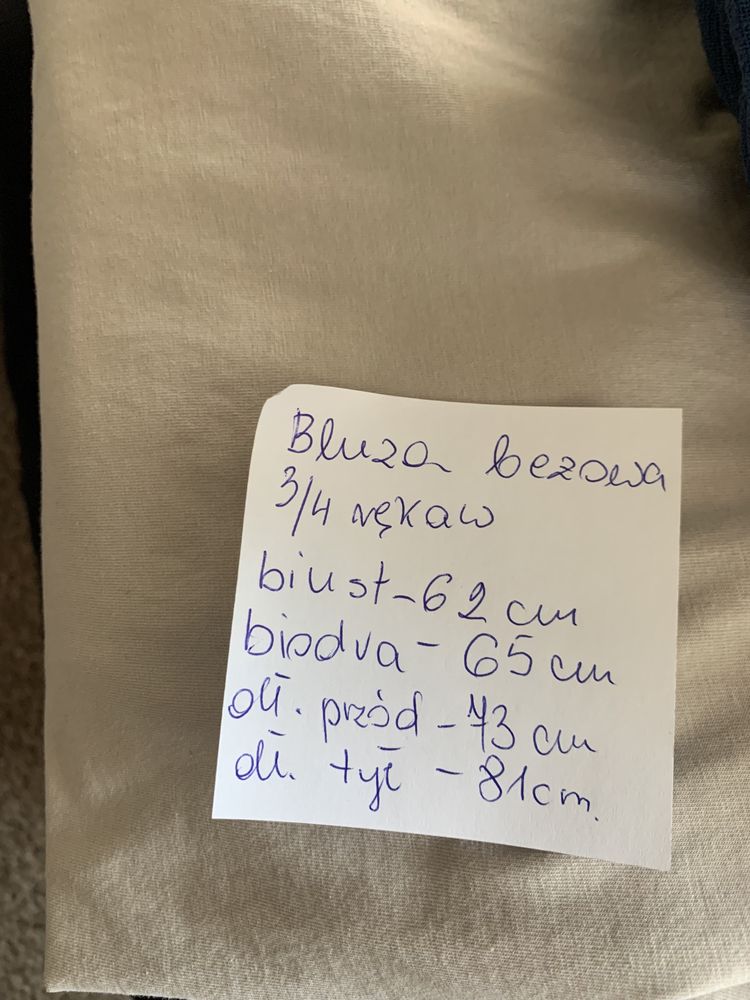 Bluza bezowa
3/4 rękaw
biust-62 cm
biodra - 65 cm
dł. przód - 73 cm
dł. tył - 81cm.